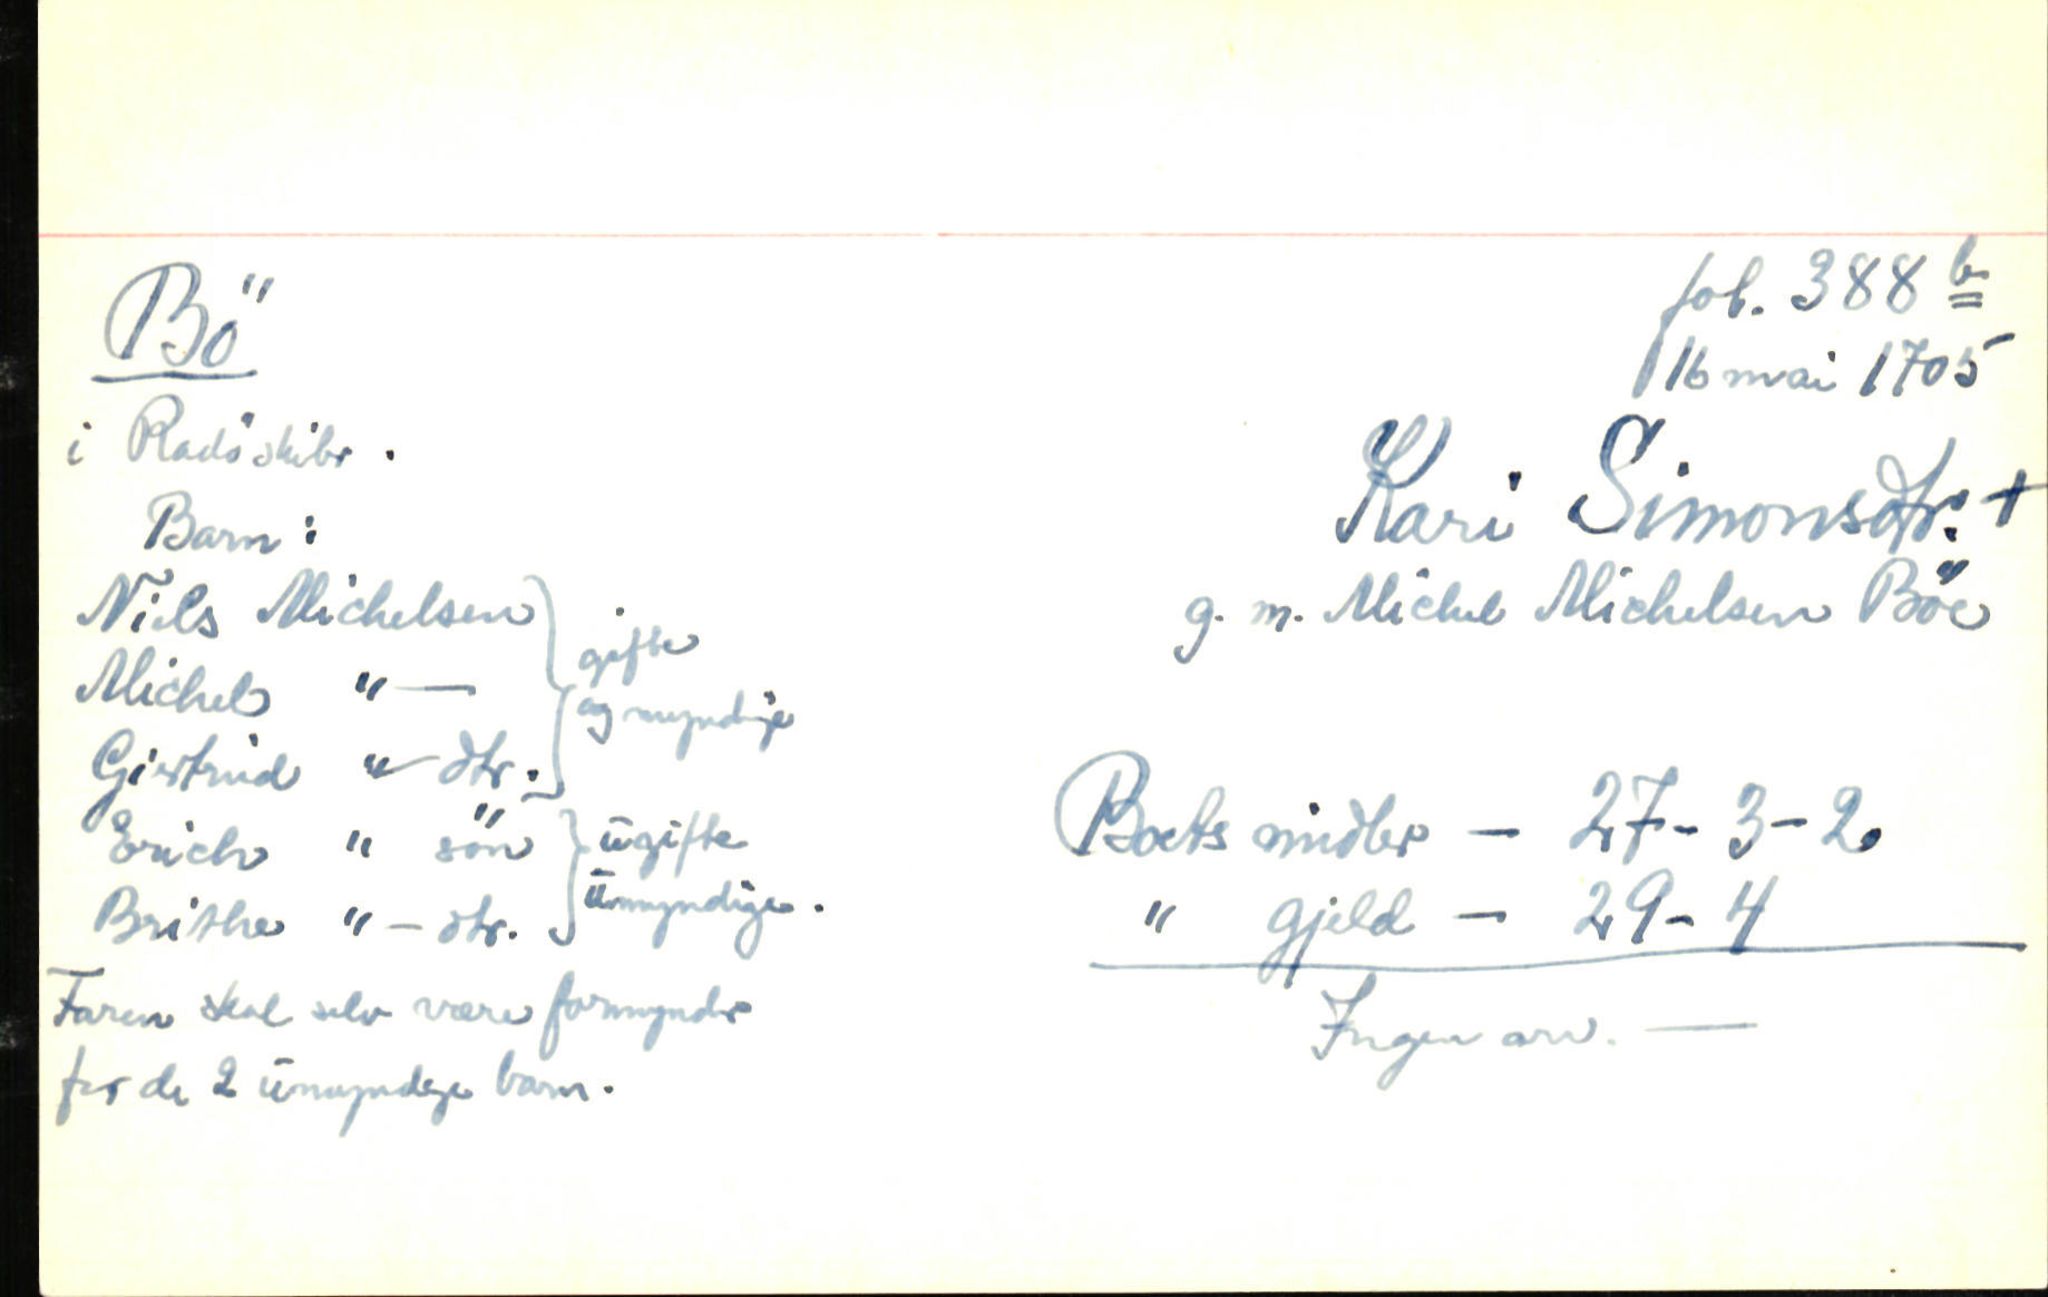 Bö
i Radöskibr.
Barn:
Niels Michelsen
Michel " —
Giertrud " — dtr.
gifte
og myndige
Erich " sön
Brithe " — dtr.
ugifte
umyndige.
Faren skal selv være formynder
for de 2 umyndige barn.
fol. 388 b
16 mai 1705
Kari Simonsdtr. +
g. m. Michel Michelsen Böe
Boets midler — 27 - 3 - 2.
" gjeld — 29 - 4
Ingen arv. —